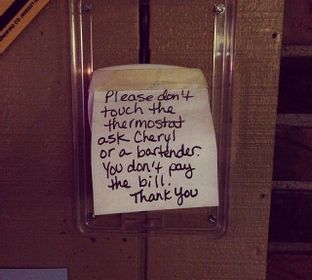 Please don't
touch the
thermostat
ask Cheryl
or a bartender.
You don't pay
the bill!
Thank You